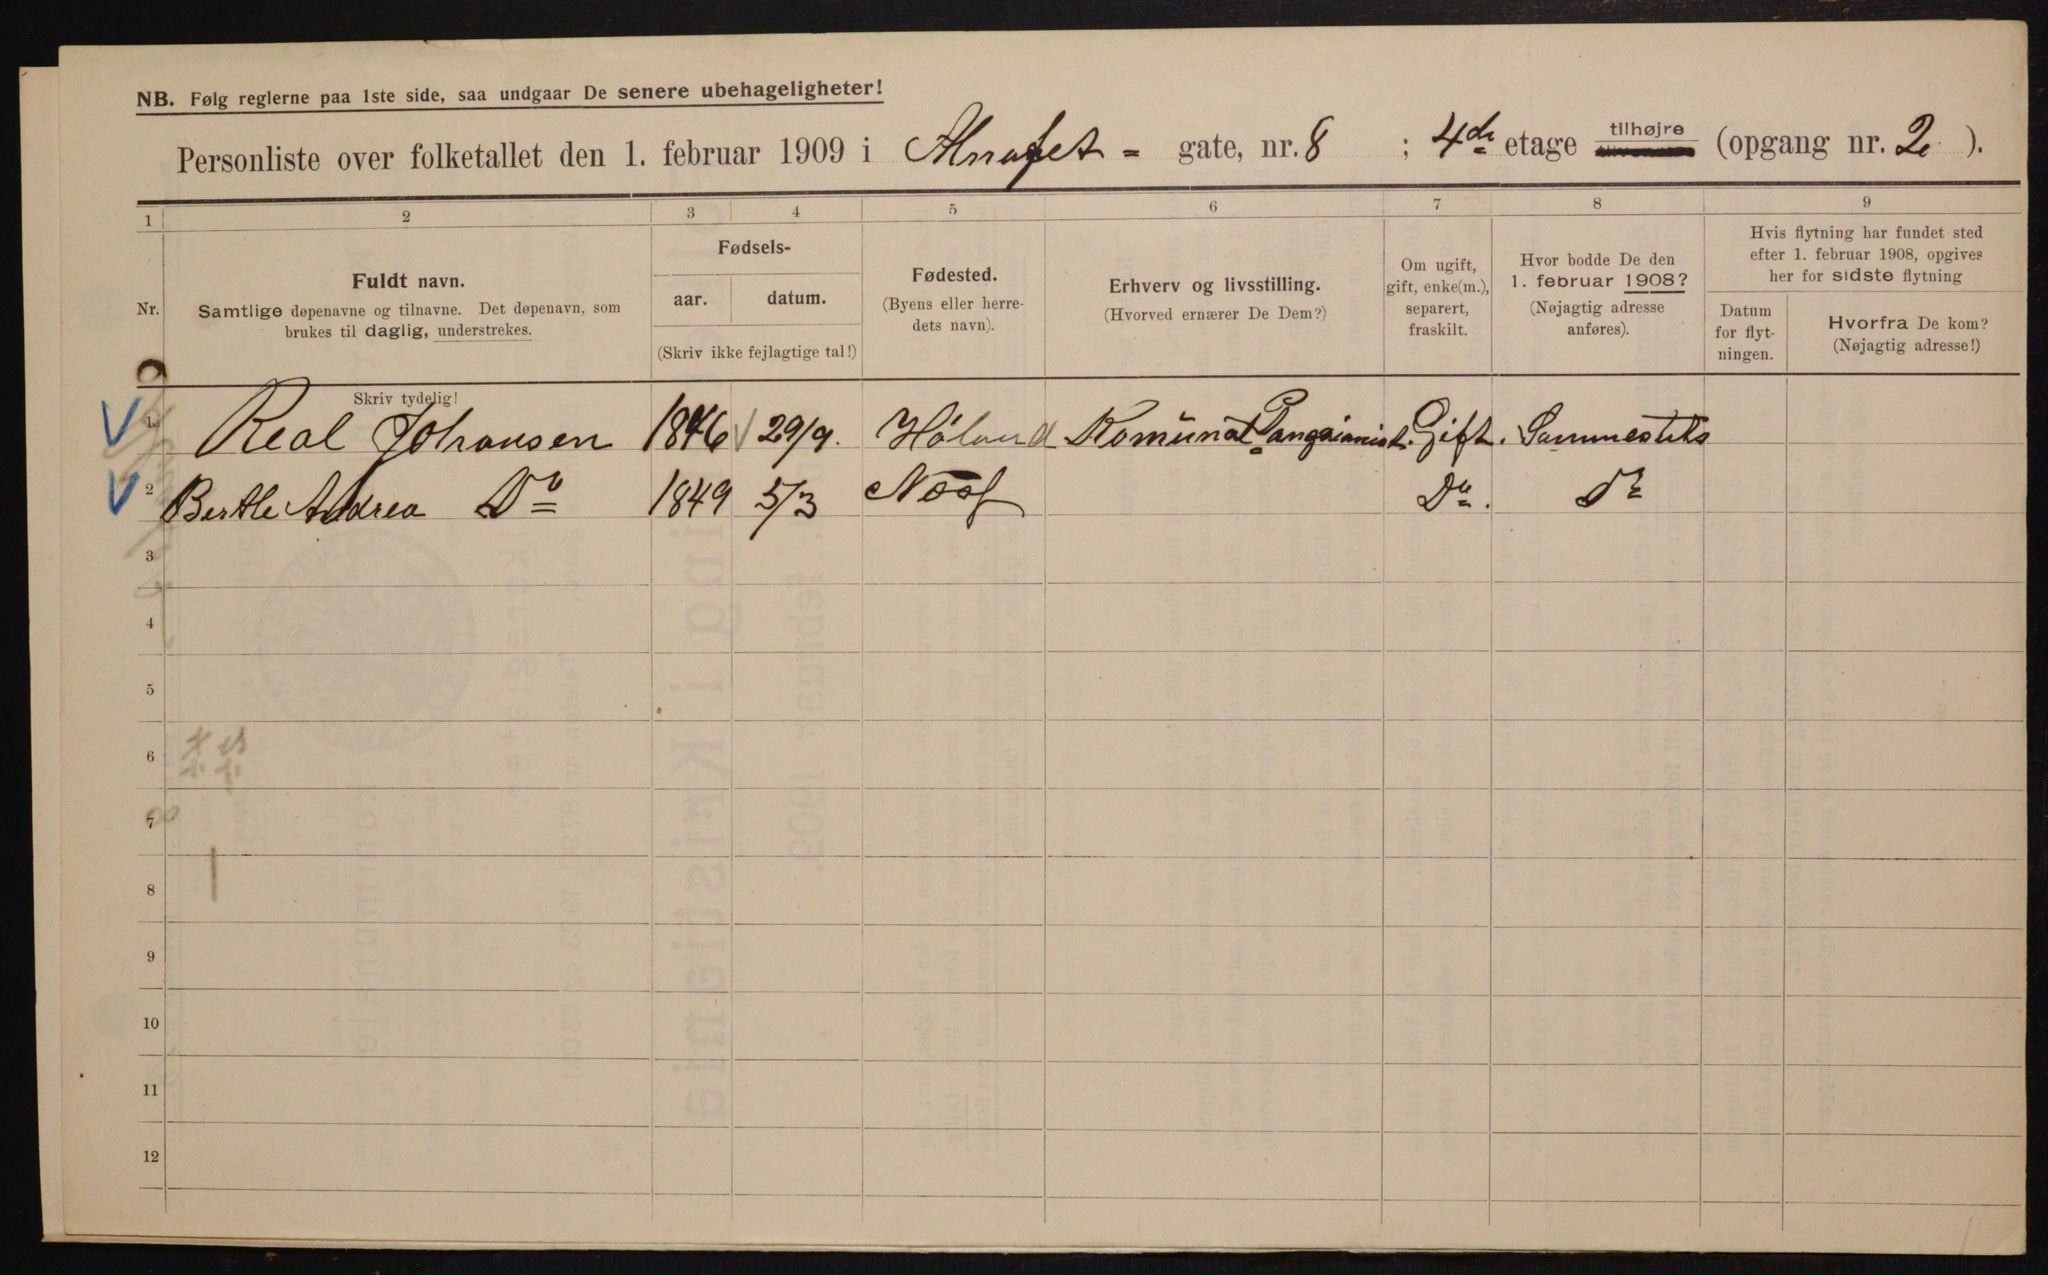 NB. Følg reglerne paa 1ste side, saa undgaar De senere ubehageligheter!
Personliste over folketallet den 1. februar 1909 i gate, nr. 8 ; 4de etage tilhøjre (opgang nr. 2 ).
1 2 3 4 5 6 7 8 9
Nr.
Fuldt navn.
Samtlige døpenavne og tilnavne. Det døpenavn, som
brukes til daglig, understrekes.
Skriv tydelig!
Fødsels-
aar. datum.
(Skriv ikke fejlagtige tal!)
Fødested.
(Byens eller herre-
dets navn).
Erhverv og livsstilling.
(Hvorved ernærer De Dem?)
Om ugift,
gift, enke(m.),
separert,
fraskilt.
Hvor bodde De den
1. februar 1908?
(Nøjagtig adresse
anføres).
Hvis flytning har fundet sted
efter 1. februar 1908, opgives
her for sidste flytning
Datum
for flyt-
ningen.
Hvorfra De kom?
(Nøjagtig adresse!)
1 Real Johansen 1846 29/9. Høland Komunal Pangsionist. Gift. Sammesteds
2 Berthe Andrea Do 1849 5/3 Do. Do
3
4
5
6
7
8
9
10
11
12